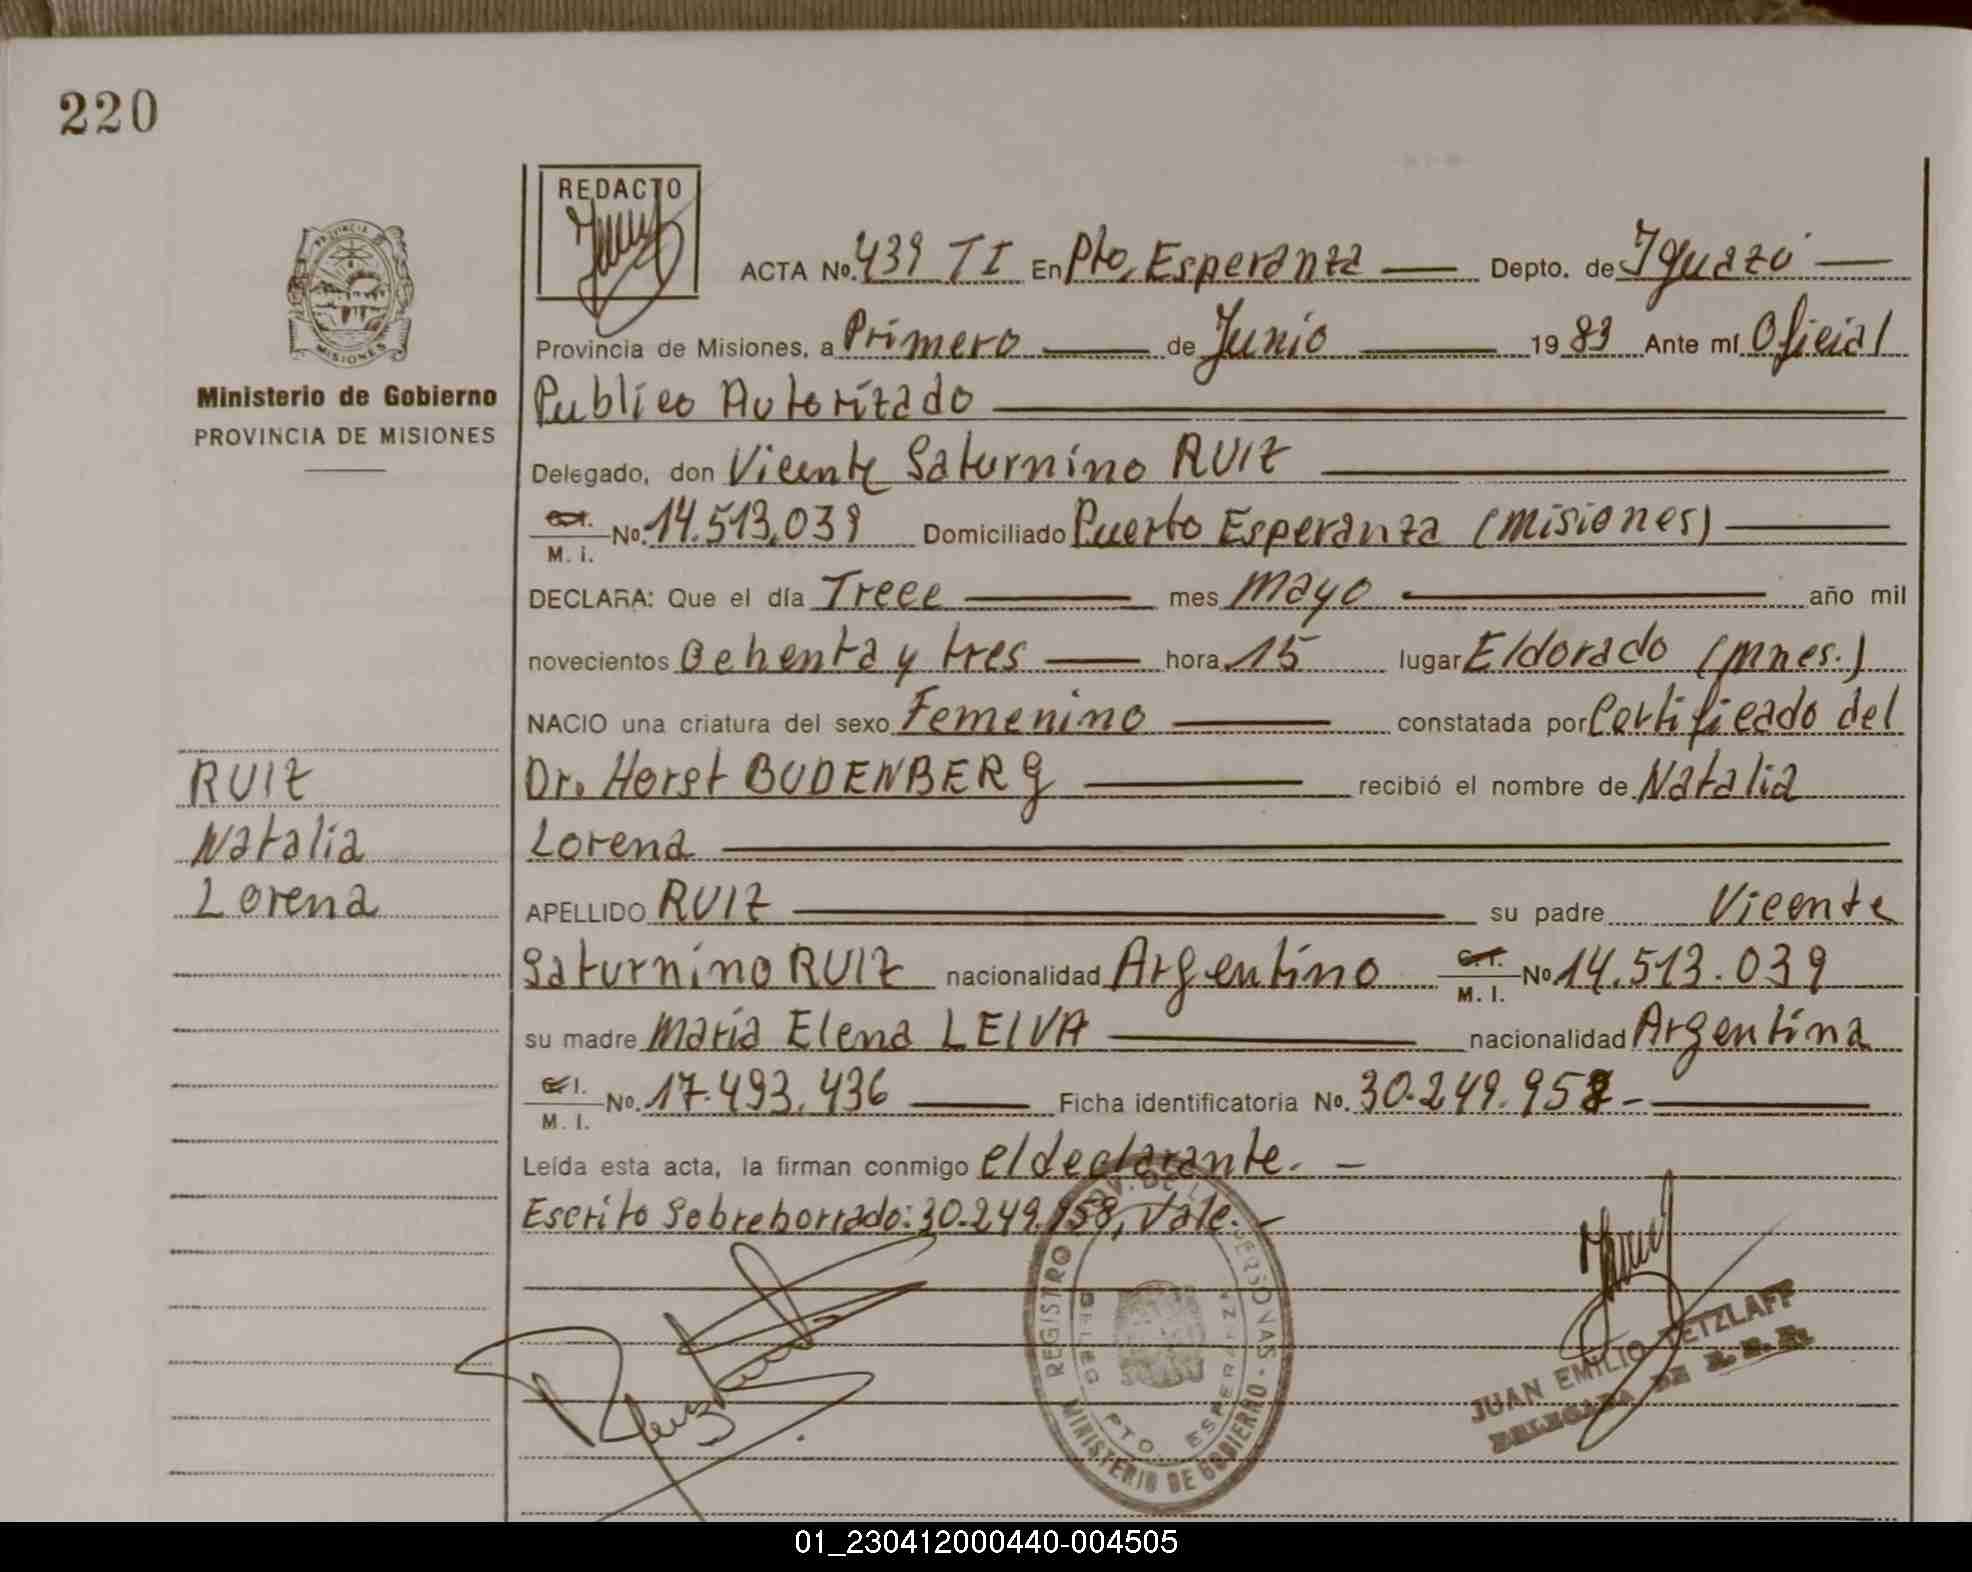 220
REDACTO
PROVINCIA DE
MISIONES
Ministerio de Gobierno
PROVINCIA DE MISIONES
ACTA No. 439 TI En Pto. Esperanza Depto. de Iguazú
Provincia de Misiones, a Primero de Junio 1983 Ante mí Oficial
Publico Autorizado
Delegado, don Vicente Saturnino RUIZ
C. I. M. I. No. 14.513.039 Domiciliado Puerto Esperanza (Misiones)
DECLARA: Que el día Trece mes Mayo año mil
novecientos Ochenta y tres hora 15 lugar Eldorado (Mnes.)
NACIO una criatura del sexo Femenino constatada por Certificado del
Dr. Horst BUDENBERg recibió el nombre de Natalia
Lorena
APELLIDO RUIZ su padre Vicente
Saturnino RUIZ nacionalidad Argentino C. I. M. I. No 14.513.039
su madre Maria Elena LEIVA nacionalidad Argentina
C. I. M. I. No. 17.493.436 Ficha identificatoria No. 30.249.958-
Leída esta acta, la firman conmigo el declarante. -
Escrito Sobreborrado: 30.249.958, Vale. -
RUIZ
Natalia
Lorena
REGISTRO PROV. DE LAS PERSONAS
MINISTERIO DE GOBIERNO
DELEG. PTO. ESPERANZA
JUAN EMILIO TETZLAFF
01_230412000440-004505